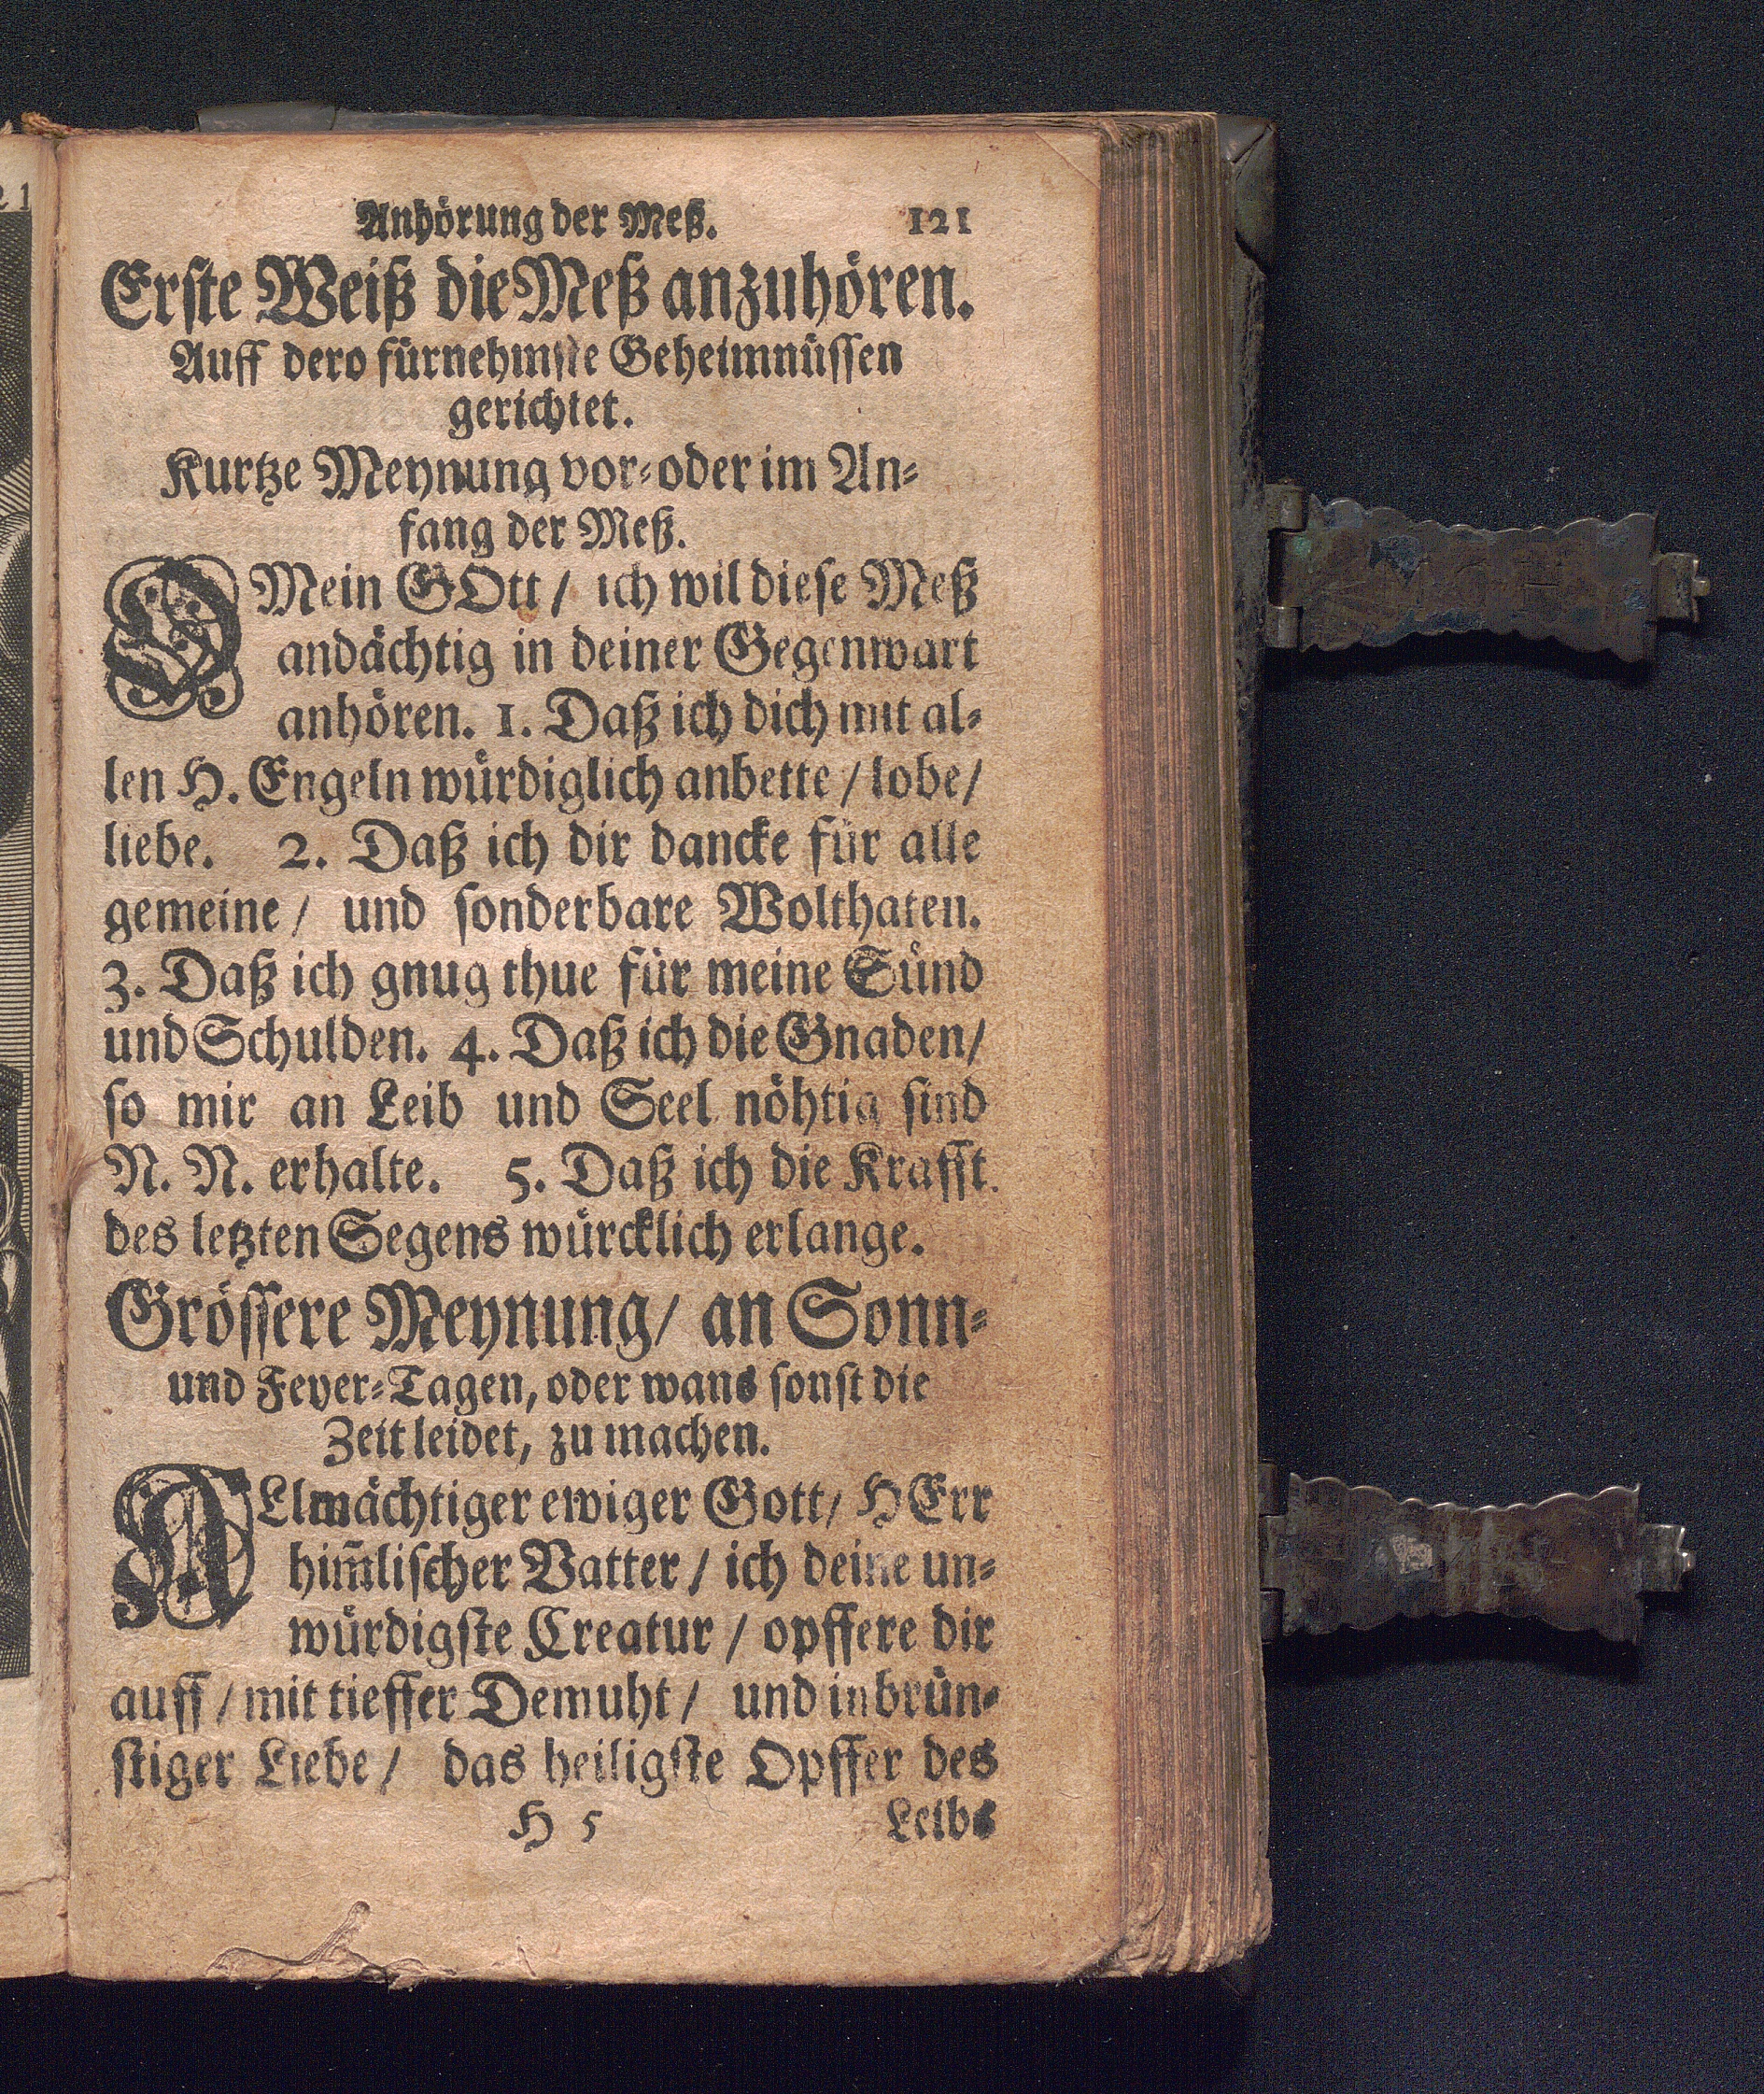 21
Anhörung der Meß. 121
Erste Weiß die Meß anzuhören.
Auff dero fürnehmste Geheimnüssen
gerichtet.
Kurtze Meynung vor- oder im An-
fang der Meß.
O Mein GOtt / ich wil diese Meß
andächtig in deiner Gegenwart
anhören. 1. Daß ich dich mit al-
len H. Engeln würdiglich anbette / lobe /
liebe. 2. Daß ich dir dancke für alle
gemeine / und sonderbare Wolthaten.
3. Daß ich gnug thue für meine Sünd
und Schulden. 4. Daß ich die Gnaden /
so mir an Leib und Seel nöhtig sind
N. N. erhalte. 5. Daß ich die Krafft
des letzten Segens würcklich erlange.
Grössere Meynung / an Sonn-
und Feyer-Tagen, oder wans sonst die
Zeit leidet, zu machen.
ALlmächtiger ewiger Gott / HErr
him̃lischer Vatter / ich deine un-
würdigste Creatur / opffere dir
auff / mit tieffer Demuht / und inbrün-
stiger Liebe / das heiligste Opffer des
H 5 Leibs